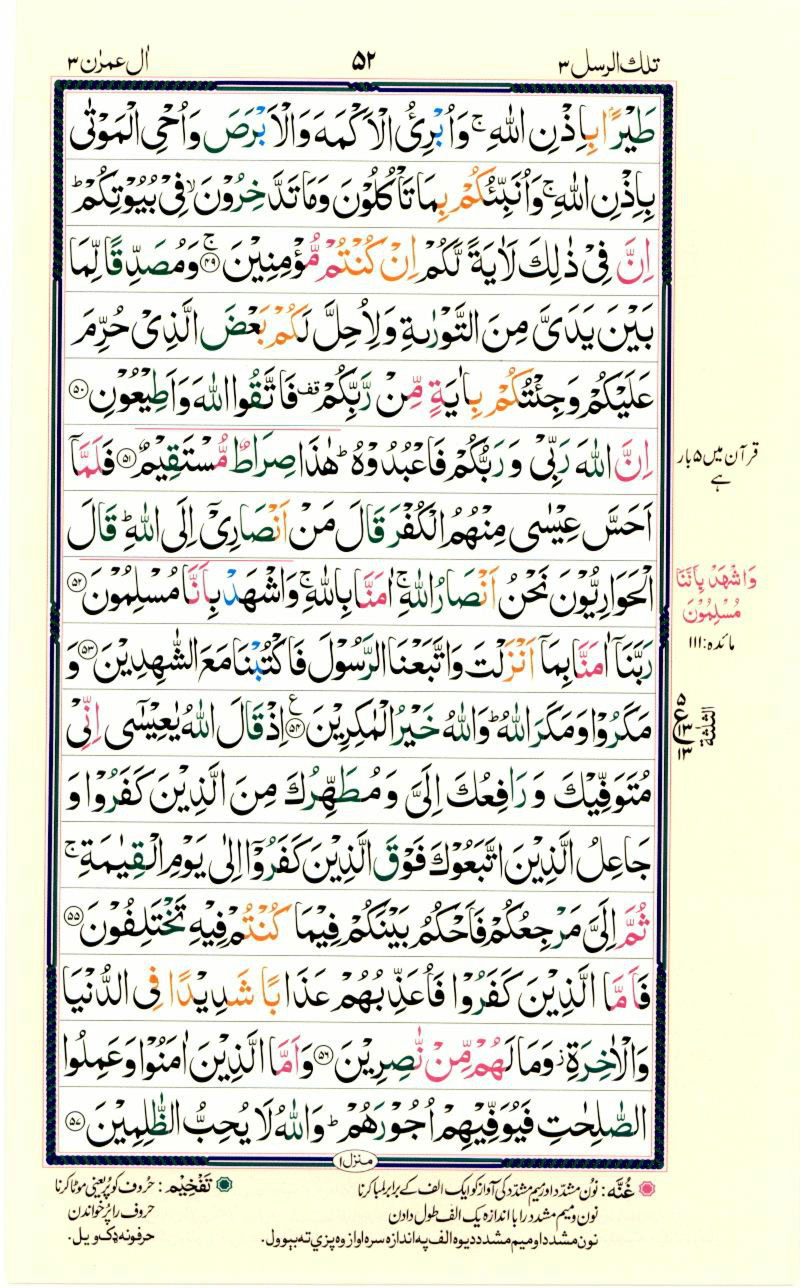 تلك الرسل ۳
۵۲
اٰل عمرٰن ۳
طَيْرًۢا بِاِذْنِ اللّٰهِ ۚ وَاُبْرِئُ الْاَكْمَهَ وَالْاَبْرَصَ وَاُحْيِ الْمَوْتٰى
بِاِذْنِ اللّٰهِ ۚ وَاُنَبِّئُكُمْ بِمَا تَاْكُلُوْنَ وَمَا تَدَّخِرُوْنَ ۙ فِيْ بُيُوْتِكُمْ ؕ
اِنَّ فِيْ ذٰلِكَ لَاٰيَةً لَّكُمْ اِنْ كُنْتُمْ مُّؤْمِنِيْنَ ۚ ۴۹ وَمُصَدِّقًا لِّمَا
بَيْنَ يَدَيَّ مِنَ التَّوْرٰىةِ وَلِاُحِلَّ لَكُمْ بَعْضَ الَّذِيْ حُرِّمَ
عَلَيْكُمْ وَجِئْتُكُمْ بِاٰيَةٍ مِّنْ رَّبِّكُمْ قف فَاتَّقُوا اللّٰهَ وَاَطِيْعُوْنِ ۵۰
اِنَّ اللّٰهَ رَبِّيْ وَرَبُّكُمْ فَاعْبُدُوْهُ ؕ هٰذَا صِرَاطٌ مُّسْتَقِيْمٌ ۵۱ فَلَمَّآ
قرآن میں ۵ بار
ہے
اَحَسَّ عِيْسٰى مِنْهُمُ الْكُفْرَ قَالَ مَنْ اَنْصَارِيْٓ اِلَى اللّٰهِ ؕ قَالَ
الْحَوَارِيُّوْنَ نَحْنُ اَنْصَارُ اللّٰهِ ۚ اٰمَنَّا بِاللّٰهِ ۚ وَاشْهَدْ بِاَنَّا مُسْلِمُوْنَ ۵۲
وَاشْهَدْ بِاَنَّنَا
مُسْلِمُوْنَ
مائدہ: ۱۱۱
رَبَّنَآ اٰمَنَّا بِمَآ اَنْزَلْتَ وَاتَّبَعْنَا الرَّسُوْلَ فَاكْتُبْنَا مَعَ الشّٰهِدِيْنَ ۵۳ وَ
مَكَرُوْا وَمَكَرَ اللّٰهُ ؕ وَاللّٰهُ خَيْرُ الْمٰكِرِيْنَ ۵۴ ع اِذْ قَالَ اللّٰهُ يٰعِيْسٰٓى اِنِّيْ
۵
ع ۱۳
۱۳
الثلثة
مُتَوَفِّيْكَ وَرَافِعُكَ اِلَيَّ وَمُطَهِّرُكَ مِنَ الَّذِيْنَ كَفَرُوْا وَ
جَاعِلُ الَّذِيْنَ اتَّبَعُوْكَ فَوْقَ الَّذِيْنَ كَفَرُوْٓا اِلٰى يَوْمِ الْقِيٰمَةِ ۚ
ثُمَّ اِلَيَّ مَرْجِعُكُمْ فَاَحْكُمُ بَيْنَكُمْ فِيْمَا كُنْتُمْ فِيْهِ تَخْتَلِفُوْنَ ۵۵
فَاَمَّا الَّذِيْنَ كَفَرُوْا فَاُعَذِّبُهُمْ عَذَابًا شَدِيْدًا فِي الدُّنْيَا
وَالْاٰخِرَةِ ۫ وَمَا لَهُمْ مِّنْ نّٰصِرِيْنَ ۵۶ وَاَمَّا الَّذِيْنَ اٰمَنُوْا وَعَمِلُوا
الصّٰلِحٰتِ فَيُوَفِّيْهِمْ اُجُوْرَهُمْ ؕ وَاللّٰهُ لَا يُحِبُّ الظّٰلِمِيْنَ ۵۷
منزل ۱
غُنَّہ: نون مشدد اور میم مشدد کی آواز کو ایک الف کے برابر لمبا کرنا
نون و میم مشدد را با اندازه یک الف طول دادن
نون مشدد او میم مشدد د یوه الف په اندازه سره اواز وه پزې ته بېوول.
تَفْخِیْم: حروف کو پُر یعنی موٹا کرنا
حروف را پُر خواندن
حرفونه ډک ویل.